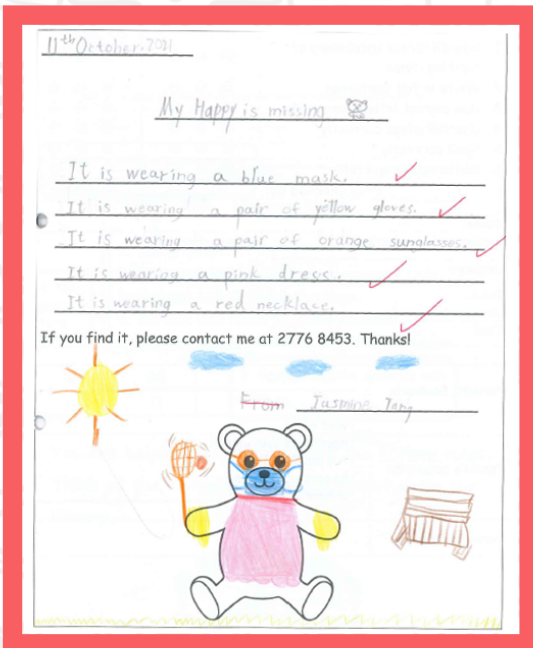 11th October, 2021
My Happy is missing
It is wearing a blue mask.
It is wearing a pair of yellow gloves.
It is wearing a pair of orange sunglasses.
It is wearing a pink dress.
It is wearing a red necklace.
If you find it, please contact me at 2776 8453. Thanks!
From Jasmine